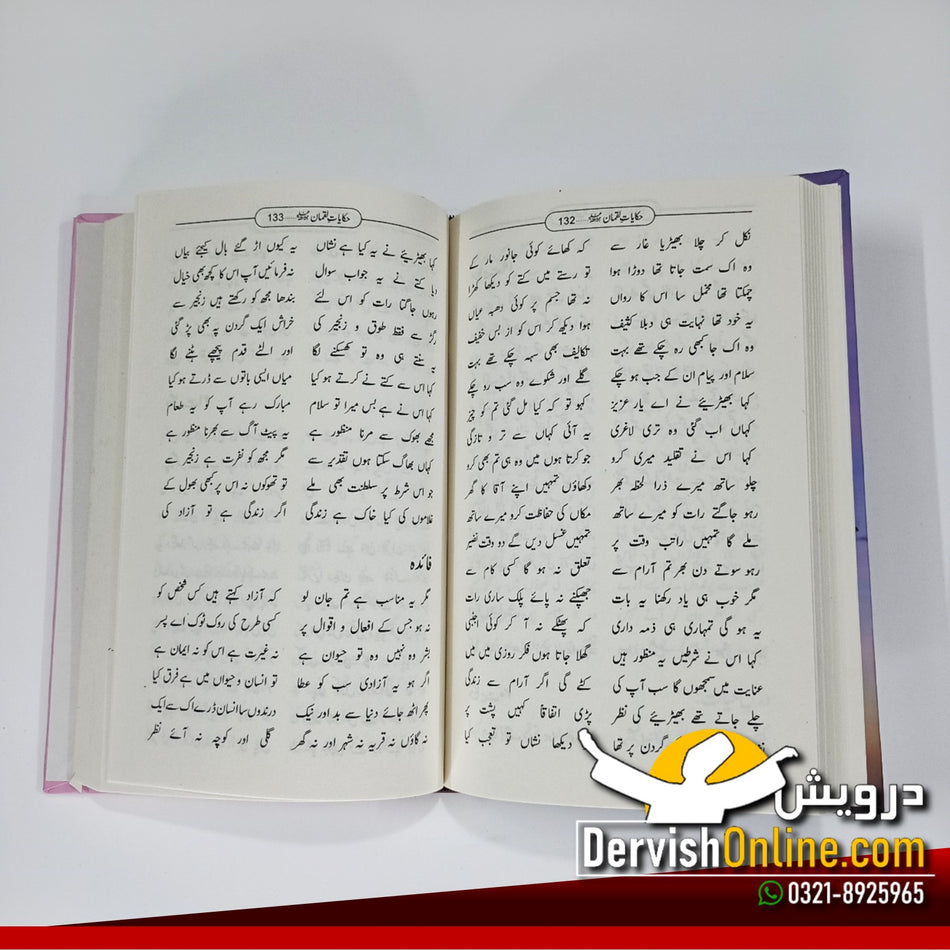 حکایات لقمان ...... 132
نکل کر چلا بھیڑیا غار سے کہ کھائے کوئی جانور مار کے
وہ اک سمت جاتا تھا دوڑا ہوا تو رستے میں کتے کو دیکھا کھڑا
چمکتا تھا مخمل سا اس کا رواں نہ تھا جسم پر کوئی دھبہ عیاں
یہ خود تھا نہایت ہی دبلا کثیف ہوا دیکھ کر اس کو از بس خفیف
وہ اک جا کبھی رہ چکے تھے بہت تکالیف بھی سہہ چکے تھے بہت
سلام اور پیام ان کے جب ہو چکے گلے اور شکوے وہ سب رد چکے
کہا بھیڑیئے نے اے یار عزیز کہو تو کہ کیا مل گئی تم کو چیز
کہاں اب گئی وہ تری لاغری یہ آئی کہاں سے تر و تازگی
کہا اس نے تقلید میری کرو جو کرتا ہوں میں وہ ہی تم بھی کرو
چلو ساتھ میرے ذرا لحظہ بھر دکھاؤں تمہیں اپنے آقا کا گھر
رہو جاگتے رات کو میرے ساتھ مکاں کی حفاظت کرو میرے ساتھ
ملے گا تمہیں راتب وقت پر تمہیں غسل دیں گے دو وقت نفیر
رہو سوتے دن بھر تم آرام سے تعلق نہ ہو گا کسی کام سے
مگر خوب ہی یاد رکھنا یہ بات جھپکنے نہ پائے پلک ساری رات
یہ ہو گی تمہاری ہی ذمہ داری کہ پھٹکے نہ آ کر کوئی اجنبی
کہا اس نے شرطیں یہ منظور ہیں گھلا جاتا ہوں فکر روزی میں میں
عنایت میں سمجھوں گا سب آپ کی کٹے گی اگر آرام سے زندگی
چلے جاتے تھے بھیڑیئے کی نظر پڑی اتفاقاً کہیں پشت پر
گردن پر تھا دیکھا نشاں تو تعجب کیا
حکایات لقمان ...... 133
کہا بھیڑیئے نے یہ کیا ہے نشاں یہ کیوں اڑ گئے بال کیجئے بیاں
دیا کتے نے یہ جواب سوال نہ فرمائیں آپ اس کا کچھ بھی خیال
ہوں جاگتا رات کو اس لئے بندھا مجھ کو رکھتے ہیں زنجیر سے
رگڑ سے فقط طوق و زنجیر کی خراش ایک گردن پہ بھی پڑ گئی
یہ سنتے ہی وہ تو کھسکنے لگا اور الٹے قدم پیچھے ہٹنے لگا
کہا اس سے کتے نے کرتے ہو کیا میاں ایسی باتوں سے ڈرتے ہو کیا
کہا اس نے ہے بس میرا تو سلام مبارک رہے آپ کو یہ طعام
مجھے بھوک سے مرنا منظور ہے یہ پیٹ آگ سے بھرنا منظور ہے
کہاں بھاگ سکتا ہوں تقدیر سے مگر مجھ کو نفرت ہے زنجیر سے
جو اس شرط پر سلطنت بھی ملے تو تھوکوں نہ اس پر کبھی بھول کے
غلاموں کی کیا خاک ہے زندگی اگر زندگی ہے تو آزاد کی
فائدہ
مگر یہ مناسب ہے تم جان لو کہ آزاد کہتے ہیں کس شخص کو
نہ ہو جس کے افعال و اقوال پر کسی طرح کی روک ٹوک اے پسر
بشر وہ نہیں وہ تو حیوان ہے نہ غیرت ہے اس کو نہ ایمان ہے
اگر ہو یہ آزادی سب کو عطا تو انسان و حیواں میں ہے فرق کیا
بھر اٹھ جائے دنیا سے بد اور نیک درندوں سا انسان ڈرے اک سے ایک
نہ گاؤں نہ قریہ نہ شہر اور نہ گھر گلی اور کوچہ نہ آئے نظر
درویش
DervishOnline.com
0321-8925965